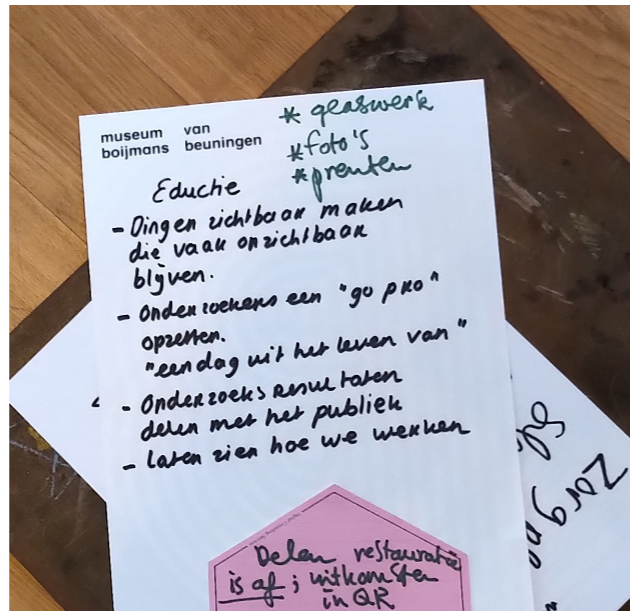 museum van
boijmans beuningen
* glaswerk
* foto's
* prenten
Eductie
- Dingen zichtbaar maken
die vaak onzichtbaar
blijven.
- Onderzoekers een "go pro"
opzetten.
"een dag uit het leven van"
- Onderzoeksresultaten
delen met het publiek
- laten zien hoe we werken
Delen restauratie
is af; uitkomsten
in QR
Zorg